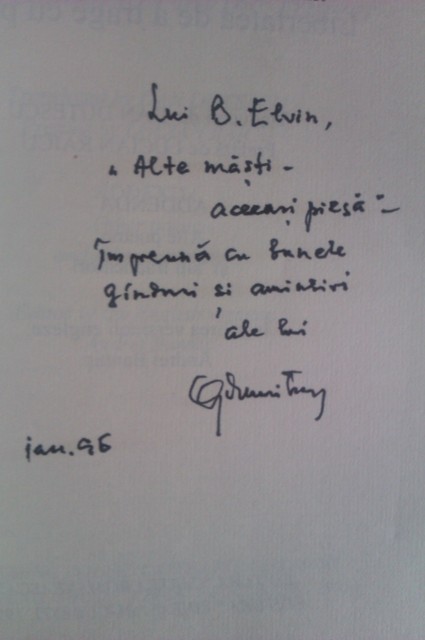 Lui B. Elvin,
„Alte măști -
aceeași piesă” -
împreună cu bunele
gînduri și amintiri
ale lui
GDumitru
ian. 96